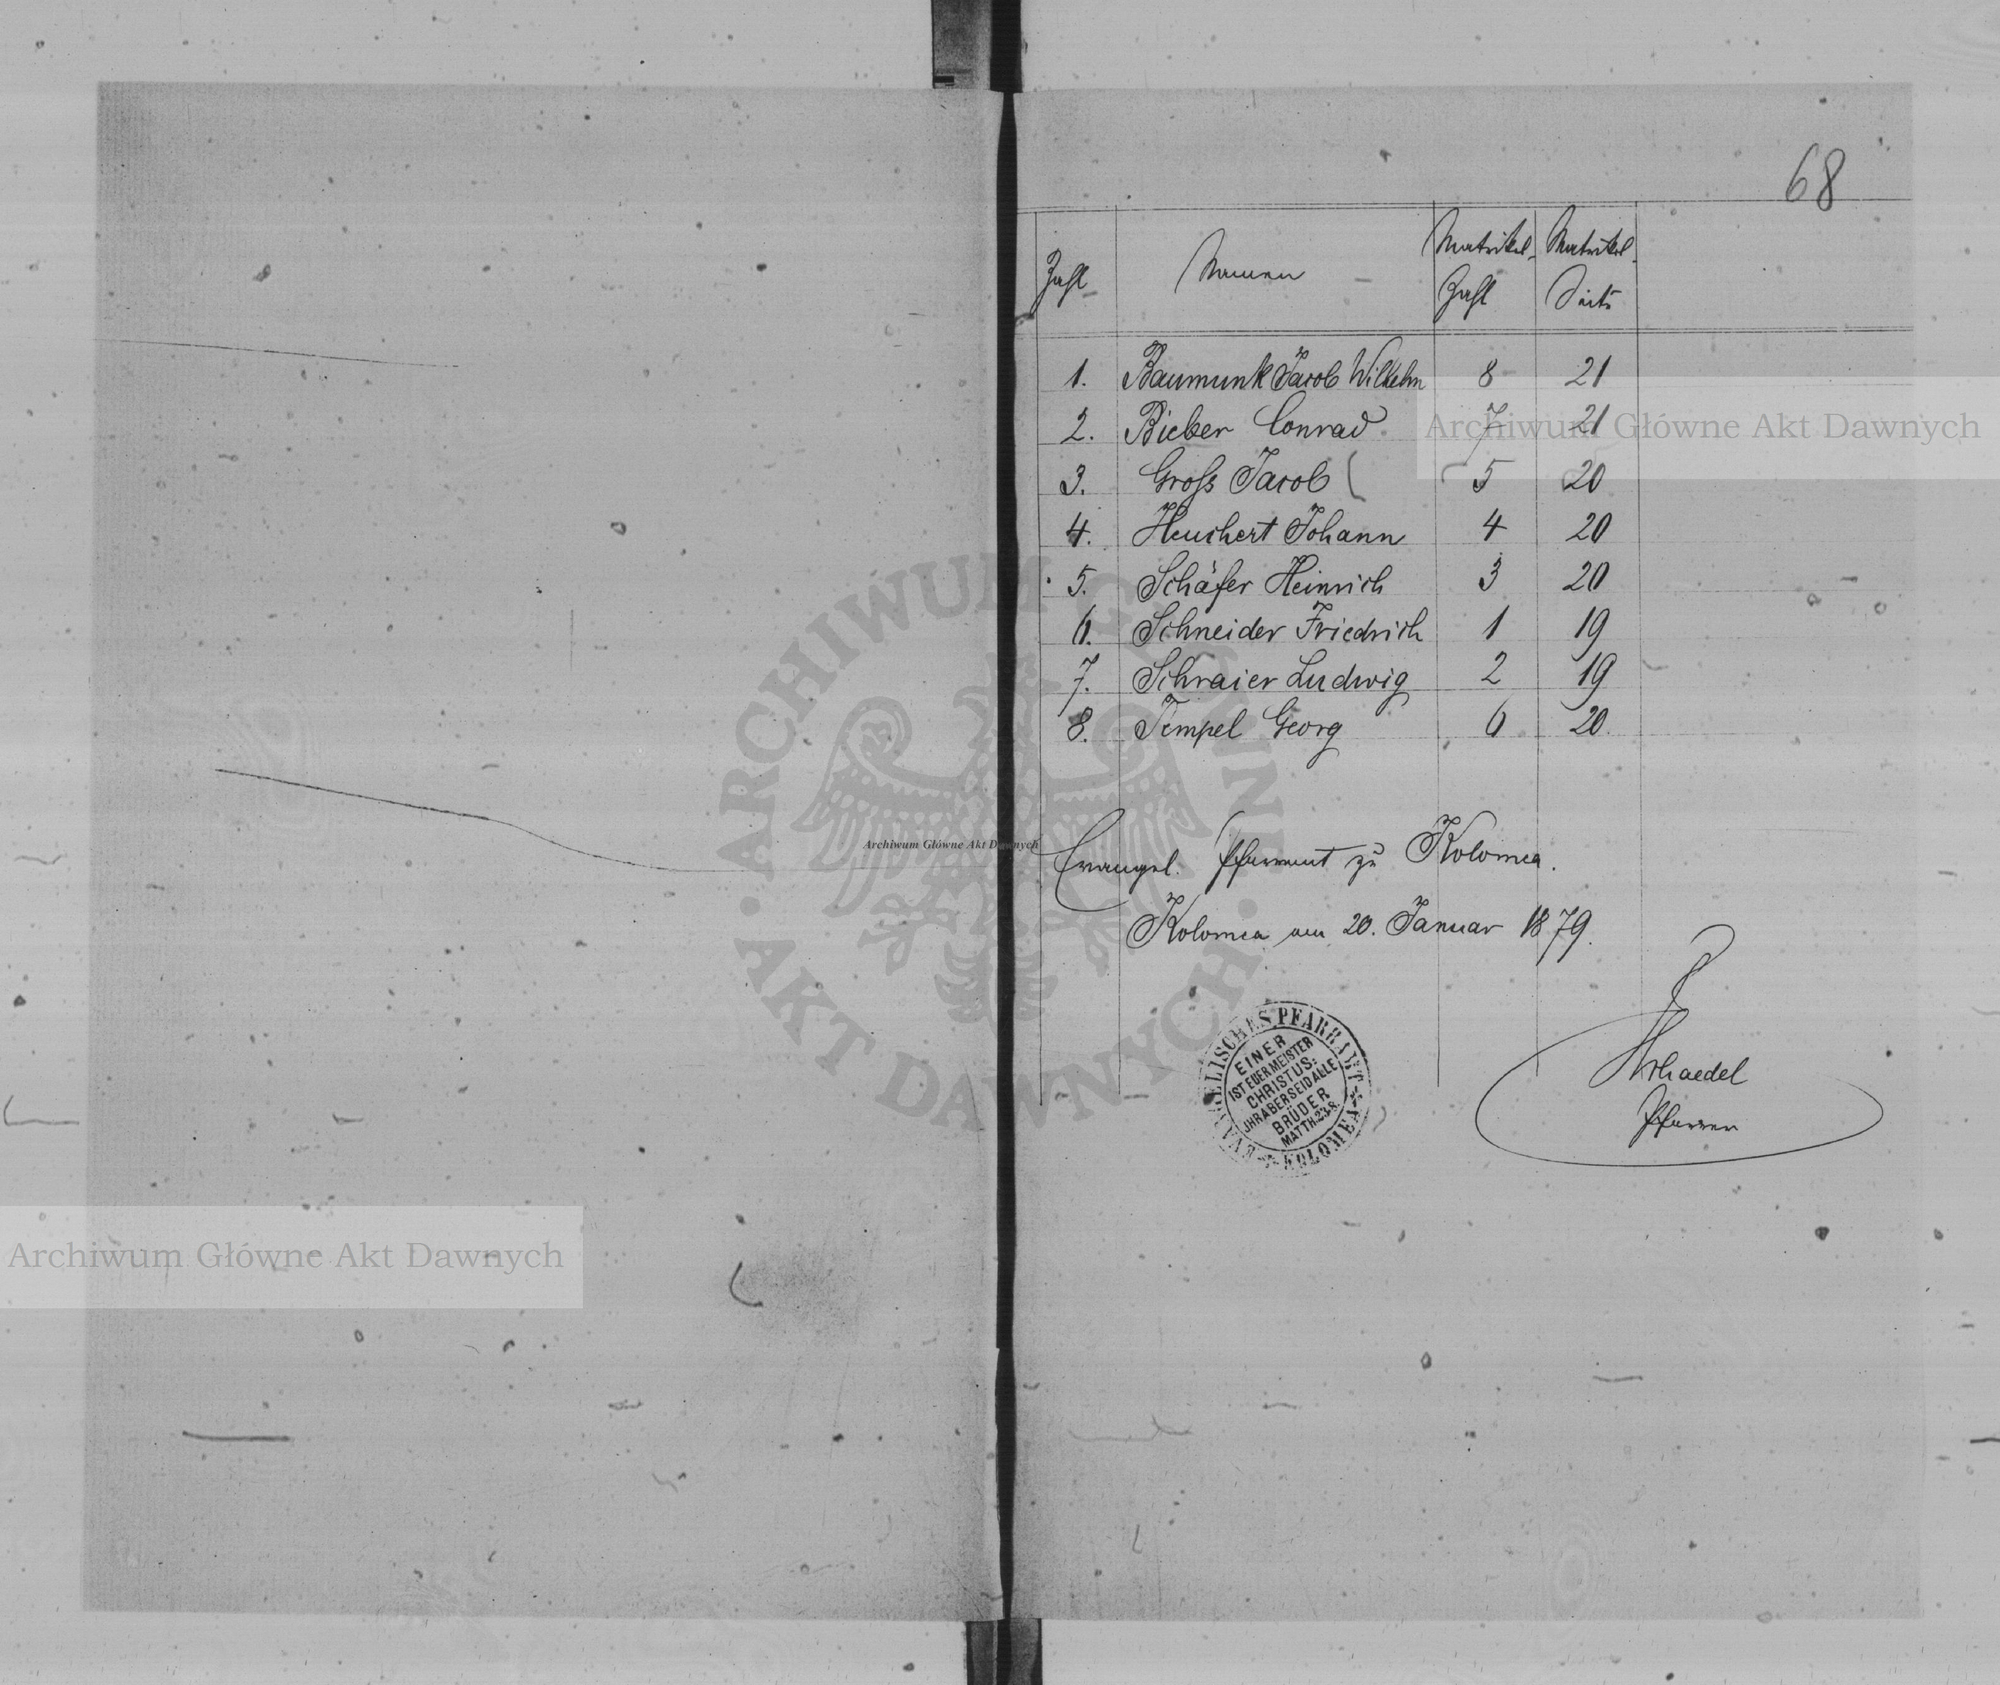 68
Zahl Namen Matrikel- Zahl Matrikel- Seite
1. Baumunk Jacob Wilhelm 8 21
2. Bieber Conrad 7 21
3. Groß Jacob 5 20
4. Heuchert Johann 4 20
5. Schäfer Heinrich 3 20
6. Schneider Friedrich 1 19
7. Schraier Ludwig 2 19
8. Tempel Georg 6 20
Evangel. Pfarramt zu Kolomea.
Kolomea am 20. Januar 1879.
Pfarrer
EVANGELISCHES PFARRAMT
KOLOMEA
EINER
IST EUER MEISTER
CHRISTUS:
JHR ABER SEID ALLE
BRÜDER
MATTH. 23.8.
Archiwum Główne Akt Dawnych
Archiwum Główne Akt Dawnych
Archiwum Główne Akt Dawnych
ARCHIWUM GŁÓWNE
AKT DAWNYCH